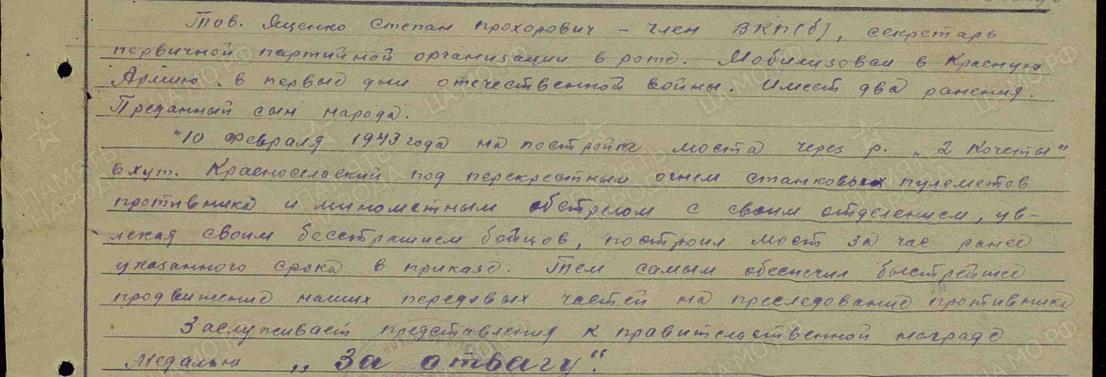 Тов. Яценко Степан Прохорович – член ВКП(б), секретарь
первичной партийной организации в роте. Мобилизован в Красную
Армию в первые дни отечественной войны. Имеет два ранения.
Преданный сын народа.
"10 февраля 1943 года на постройка моста через р. „2 Кочеты"
в хут. Красносельский под перекрестным огнем станковых пулеметов
противника и минометным обстрелом с своим отделением, ув-
лекая своим бесстрашием бойцов, построил мост за час ранее
указанного срока в приказе. Тем самым обеспечил быстрейшее
продвижение наших передвых частей на преследование противника
Заслуживает представления к правительственной награде
медалью „За отвагу".